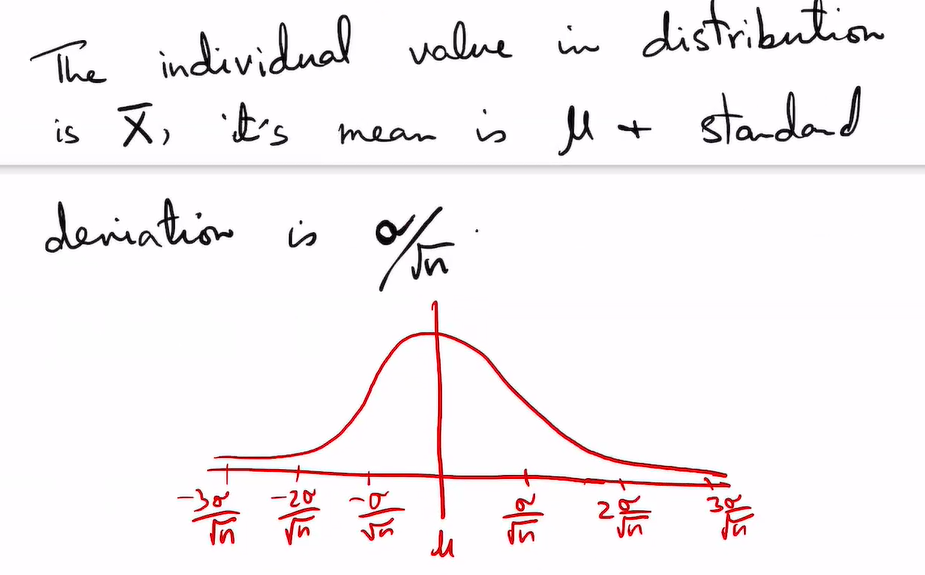 The individual value in distribution
is X̄, it's mean is μ + standard
deviation is σ/√n.
-3σ/√n -2σ/√n -σ/√n μ σ/√n 2σ/√n 3σ/√n